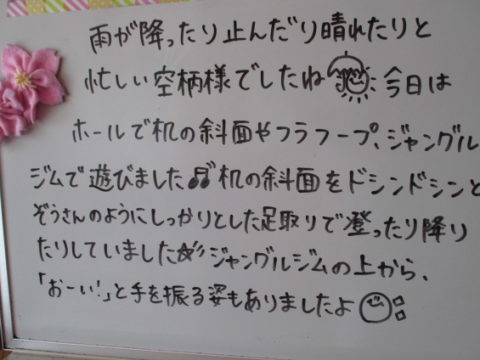 雨が降ったり止んだり晴れたりと
忙しい空柄様でしたね 今日は
ホールで机の斜面やフラフープ、ジャングル
ジムで遊びました♫机の斜面をドシンドシンと
ぞうさんのようにしっかりとした足取りで登ったり降り
たりしていました☆ジャングルジムの上から、
「おーい!」と手を振る姿もありましたよ